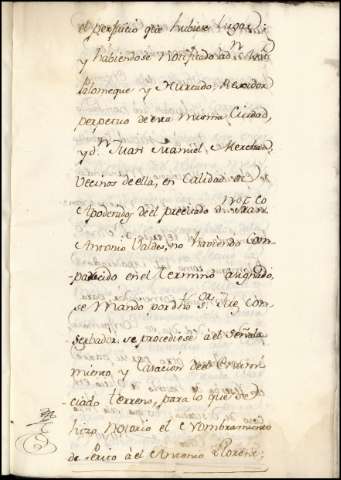 el perjuicio que hubiere Lugar;
y habiendose Notificado a Dn
Palomeque y Hurtado, Regidor
perpetuo de esta misma Ciudad,
y dn Juan Manuel
Vecinos de ella, en Calidad de
Apoderados del precitado dn Juan
Antonio Valdes, no haviendo Com-
parecido en el Termino asignado,
se Mandó por dho Sor Juez Con-
serbador se procediese á el Señala-
miento, y tasacion del Enun-
ciado Terreno, para lo que se
hizo Notorio el Nombramiento
de Perito á el Antonio Llorente;